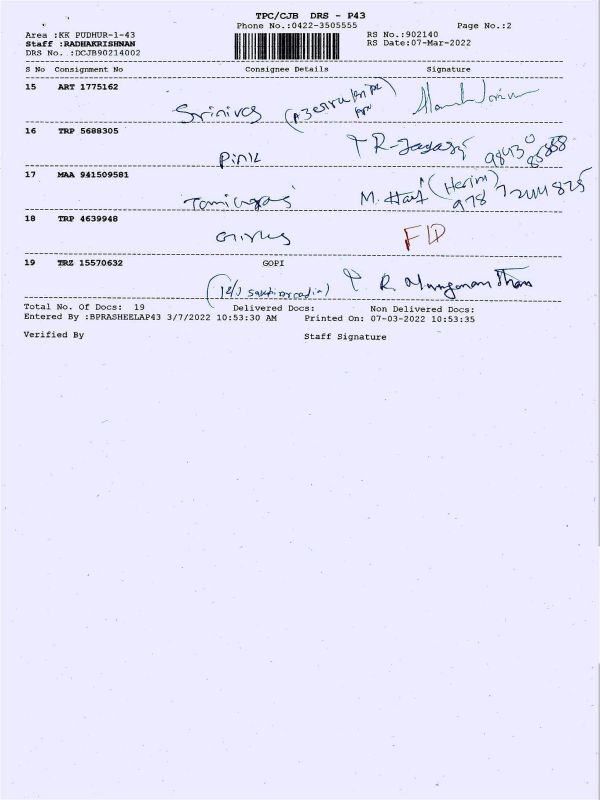 TPC/CJB DRS - P43
Phone No.:0422-3505555
Page No.:2
Area :KK PUDHUR-1-43
RS No.:902140
Staff :RADHAKRISHNAN
RS Date:07-Mar-2022
DRS No. :DCJB90214002
S No Consignment No Consignee Details Signature
15 ART 1775162
Srinivas
16 TRP 5688305
Pink
R-Jayasri 98430
85888
17 MAA 941509581
M. Hari (Harini)
978
18 TRP 4639948
19 TRZ 15570632 GOPI
R.
Total No. Of Docs: 19 Delivered Docs: Non Delivered Docs:
Entered By :BPRASHEELAP43 3/7/2022 10:53:30 AM Printed On: 07-03-2022 10:53:35
Verified By Staff Signature